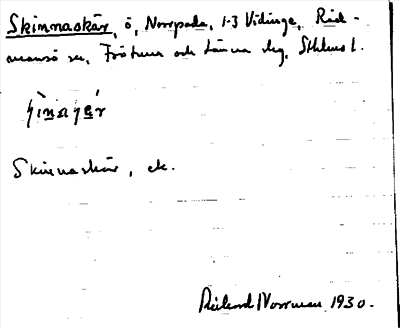 Skinnaskär, ö, Norrpada, 1-3 Vidinge, Råd-
mansö sn, Frötuna och Länna skg, Sthlms l.
Skinnaskär, ek.
Rickard Norrman 1930.